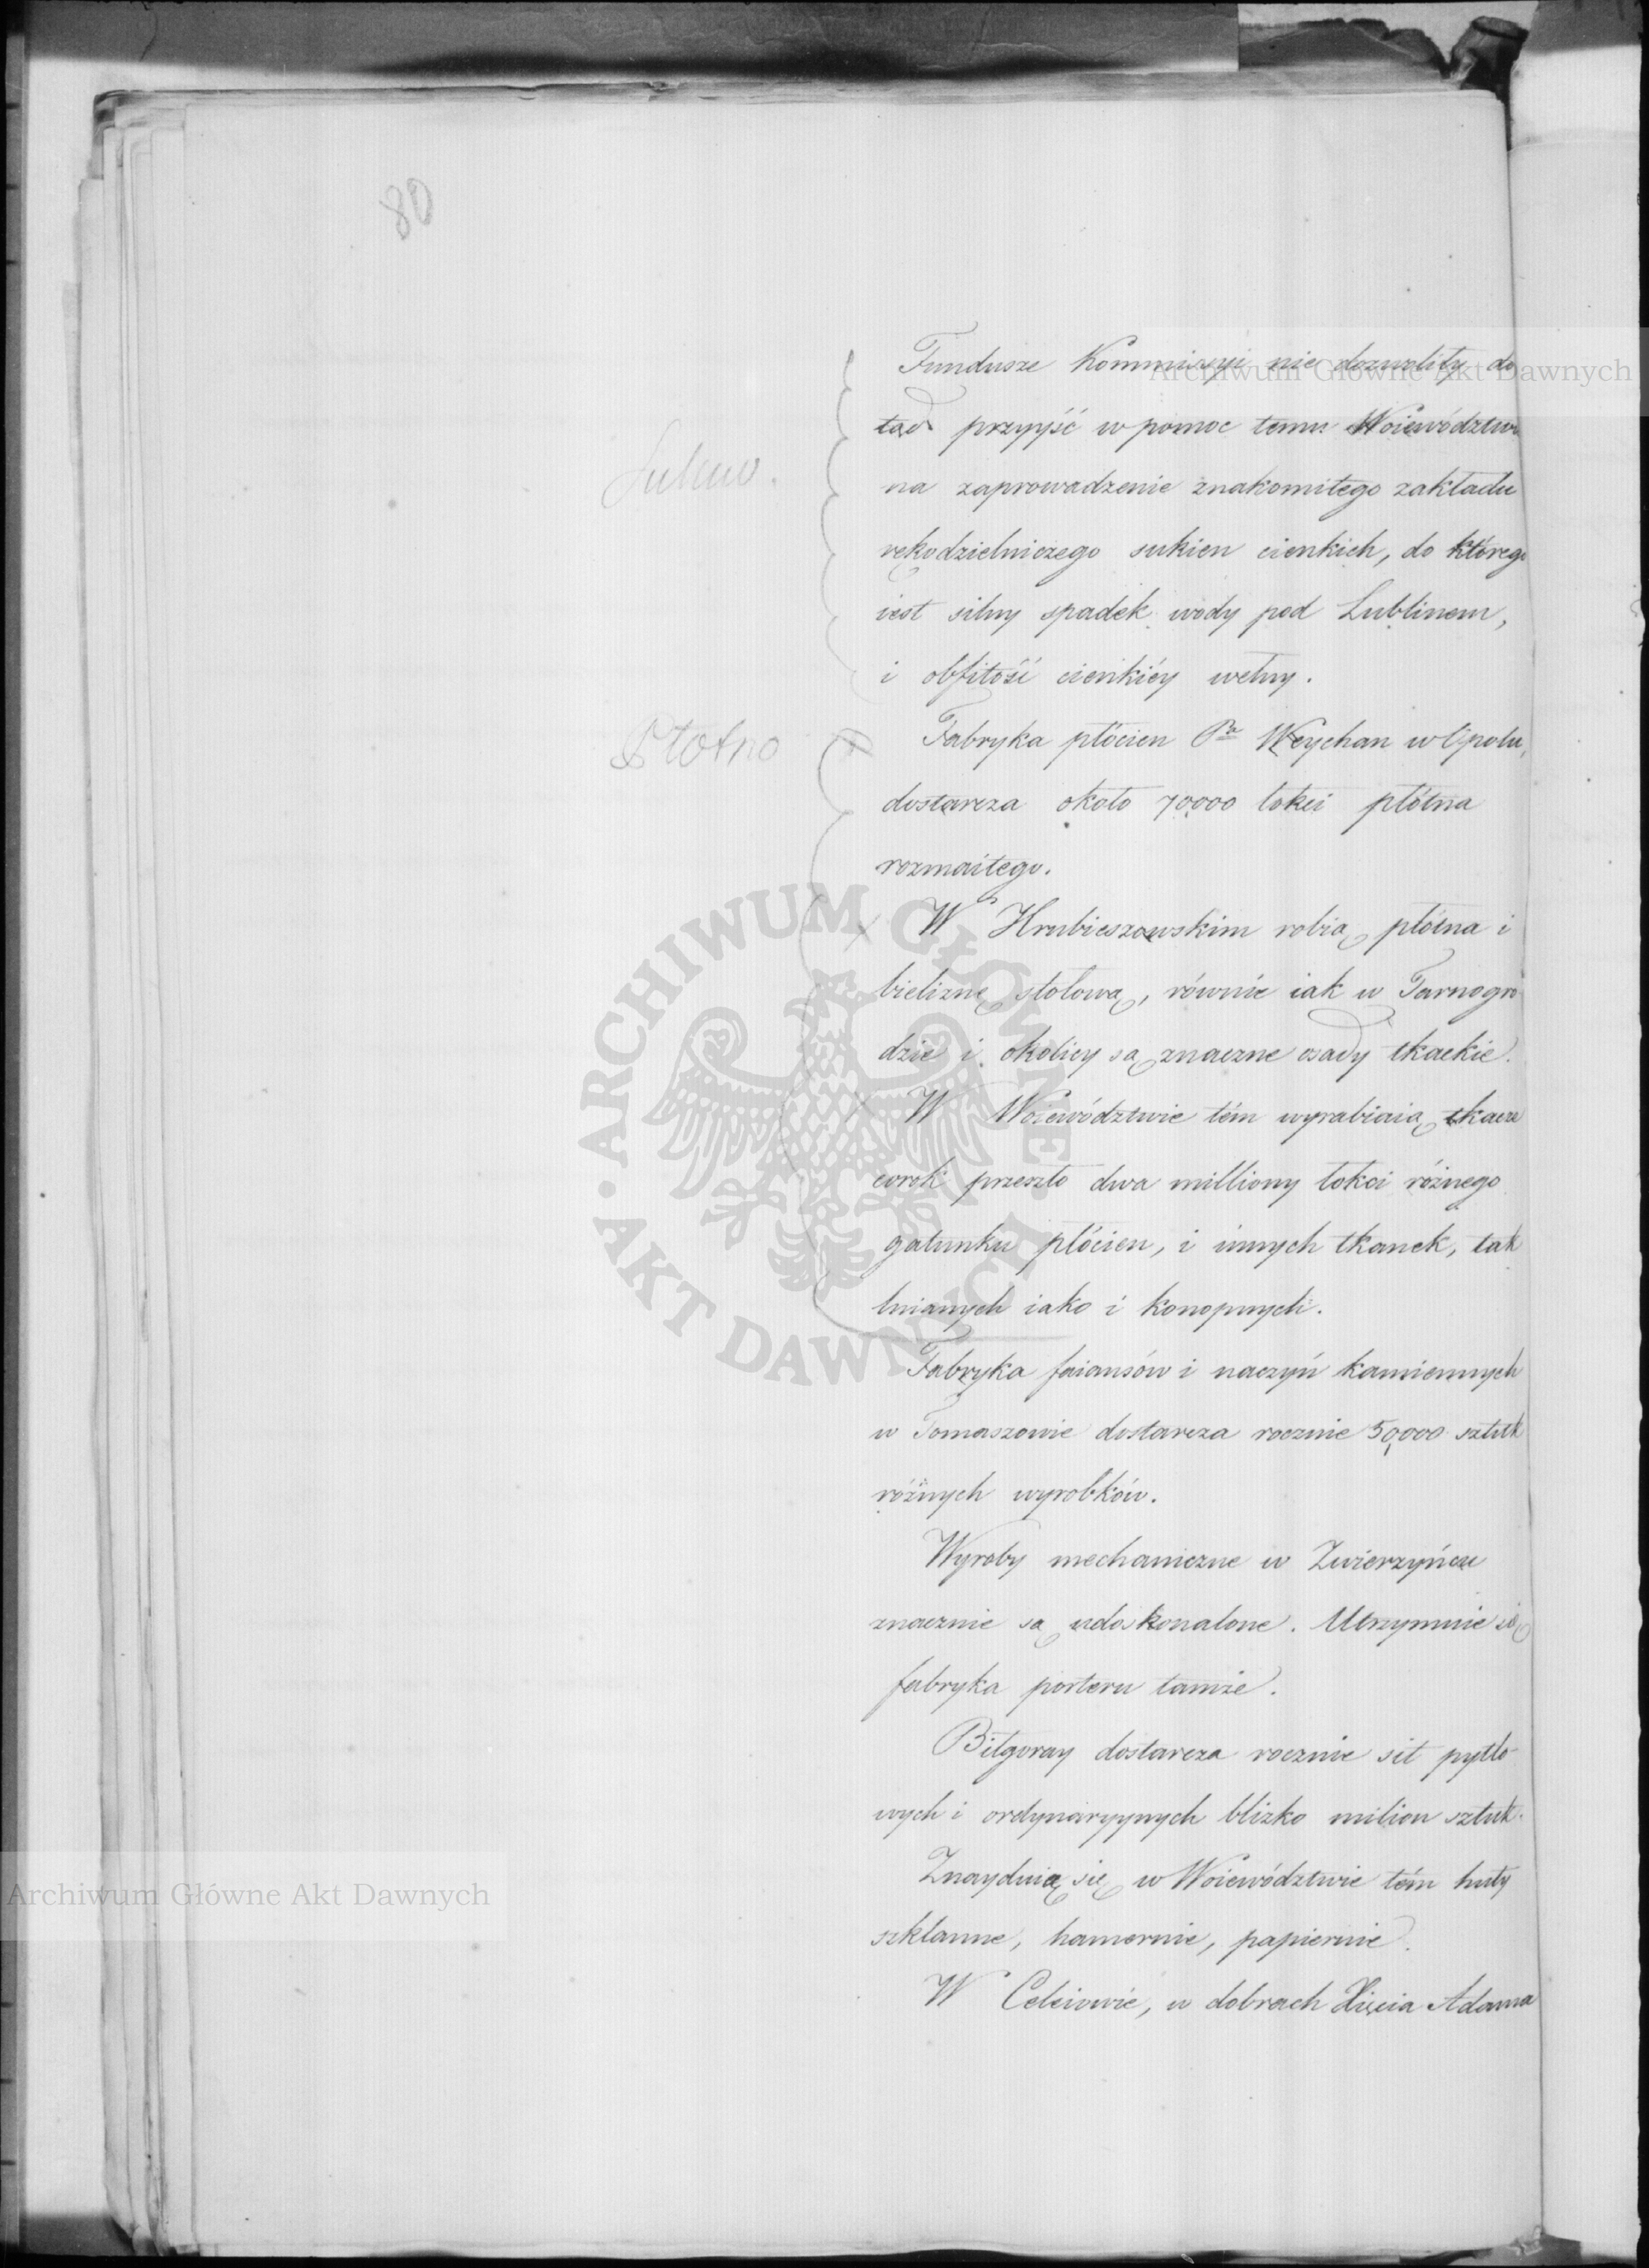 80
Archiwum Główne Akt Dawnych
Fundusze Kommissyi nie dozwoliły do
tąd przyyść w pomoc temu Woiewództwu
Sukno.
na zaprowadzenie znakomitego zakładu
rękodzielniczego sukien cienkich, do którego
iest silny spadek wody pod Lublinem,
i obfitość cienkiéy wełny.
Płótno
Fabryka płócien Pa Weychan w Opolu,
dostarcza około 70,000 łokci płótna
rozmaitego.
W Hrubieszowskim robią płótna i
bieliznę stołową, równie iak w Tarnogro
dzie i okolicy są znaczne osady tkackie.
W Woiewództwie tém wyrabiaią tkacze
corok przeszło dwa milliony łokci różnego
gatunku płócien, i innych tkanek, tak
lnianych iako i konopnych.
ARCHIWUM GŁÓWNE · AKT DAWNYCH ·
Fabryka faiansów i naczyń kamiennych
w Tomaszowie dostarcza rocznie 50,000 sztuk
różnych wyrobków.
Wyroby mechaniczne w Zwierzyńcu
znacznie są udoskonalone. Utrzymuie się
fabryka porteru tamże.
Biłgoray dostarcza rocznie sit pytlo-
wych i ordynaryynych blizko milion sztuk.
Znayduią się w Woiewództwie tém huty
szklanne, hamernie, papiernie.
Archiwum Główne Akt Dawnych
W Celeiowie, w dobrach Xięcia Adama